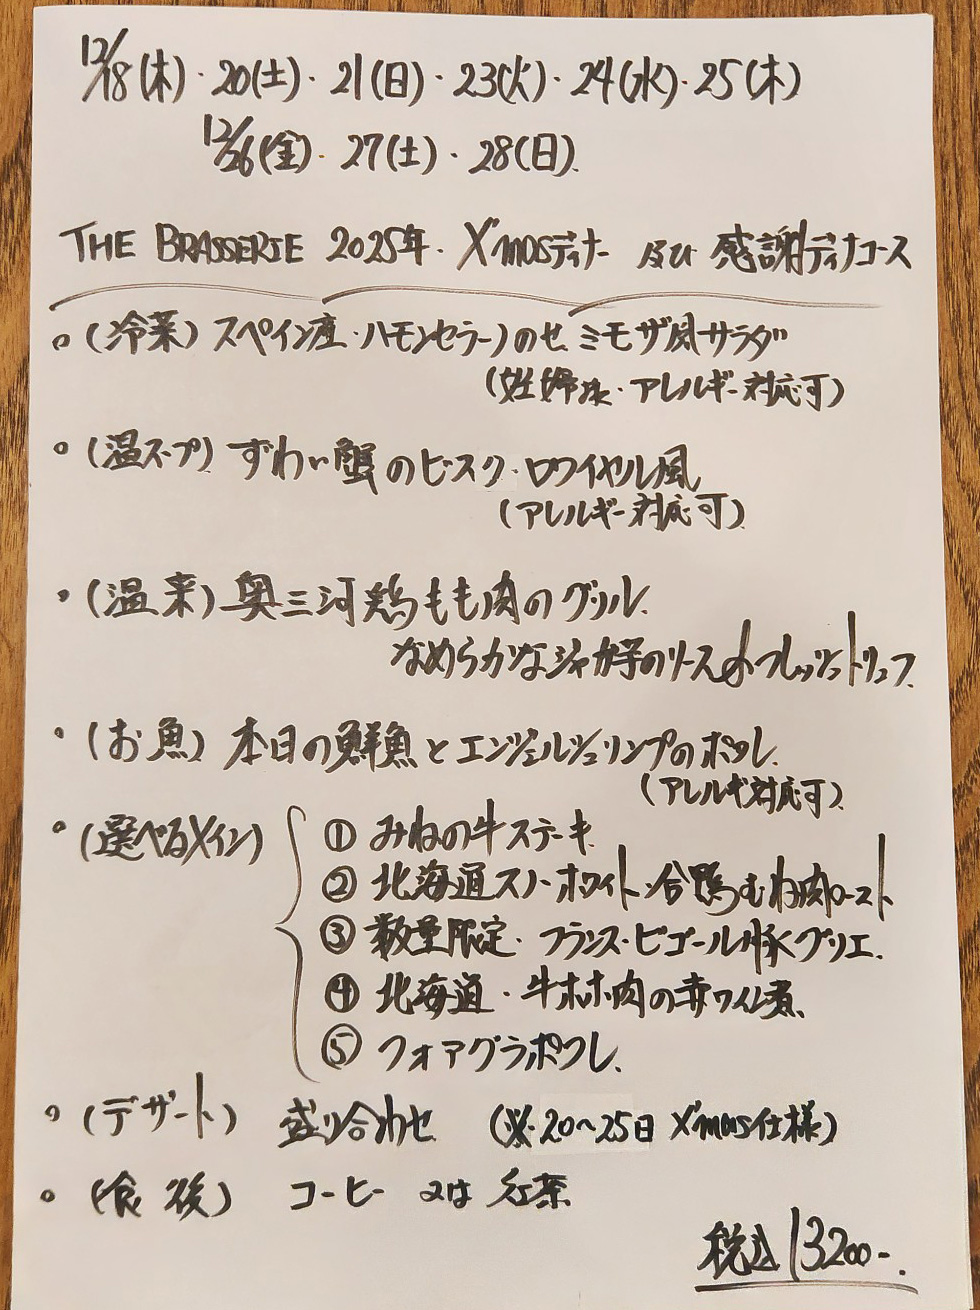 12/18(木)・20(土)・21(日)・23(火)・24(水)・25(木)
12/26(金)・27(土)・28(日)
THE BRASSERIE 2025年. X'masディナー 及び 感謝ディナーコース
(冷菜) スペイン産・ハモンセラーノのせ ミモザ風サラダ
(妊婦様・アレルギー対応可)
(温スープ) ずわい蟹のビスク・ロワイヤル風
(アレルギー対応可)
(温菜) 奥三河鶏もも肉のグリル
なめらかなジャガ芋のソース フレッシュトリュフ
(お魚) 本日の鮮魚とエンジェルシュリンプのポワレ
(アレルギー対応可)
(選べるメイン)
① みねの牛ステーキ
② 北海道スノーホワイト合鴨むね肉ロースト
③ 数量限定・フランス・ビゴール豚グリエ
④ 北海道・牛ホホ肉の赤ワイン煮
⑤ フォアグラポワレ
(デザート) 盛り合わせ (※20〜25日 X'mas仕様)
(食後) コーヒー 又は 紅茶
税込 13200-.